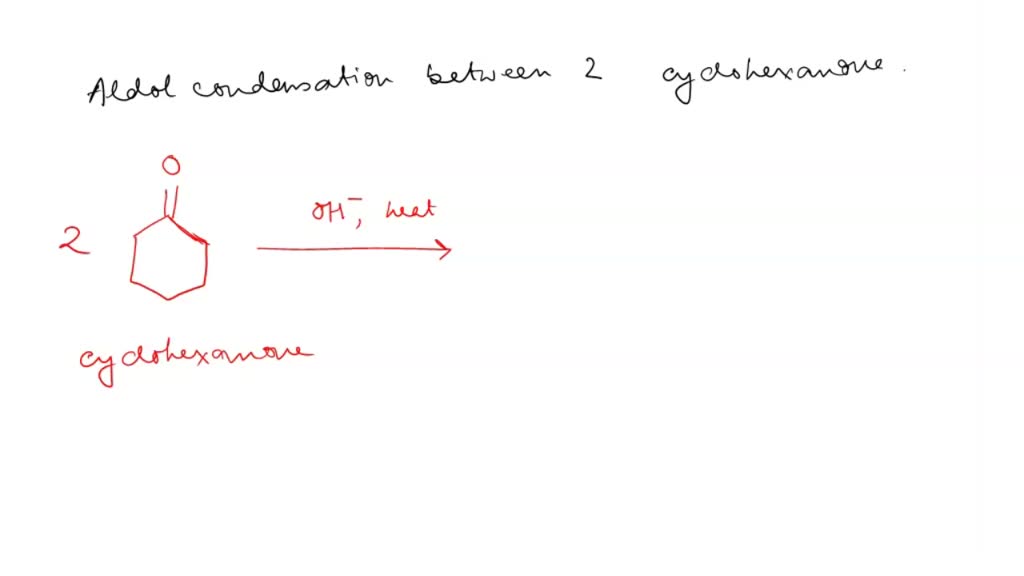 Aldol condensation between 2 cyclohexanone.
O
2
OH⁻, heat
cyclohexanone